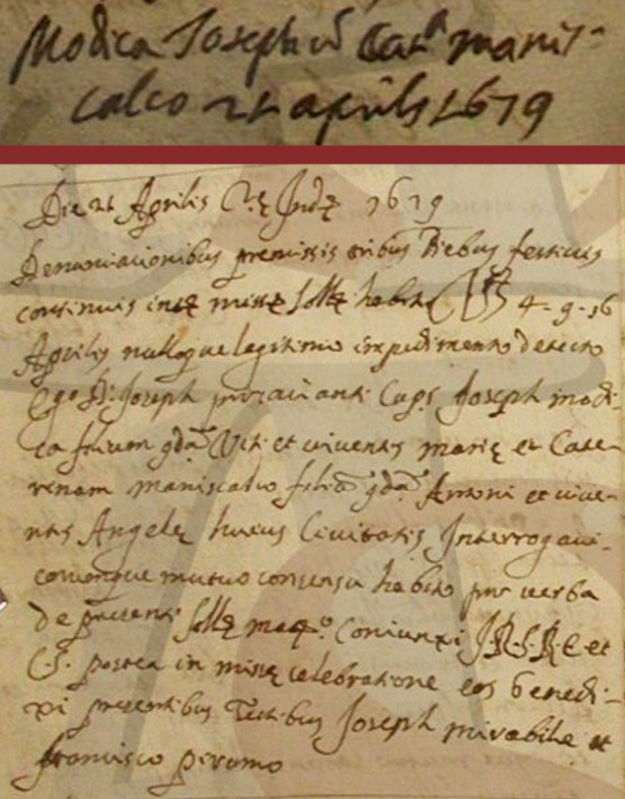 Modica Joseph cu Catna manis-
calco 21 aprilis 1679
Die 21 Aprilis 2e Inde 1679
Denunciacionibus premissis tribus diebus festivis
continuis inte misse solle habita 4-9-16
Aprilis nulloque legitimo impedimento detecto
Ego D: Joseph Cups Joseph modi-
ca filium qda Viti et viventis marie et Cate-
rinam maniscalco filia qda Antoni et vive-
ntis Angele huius Civitatis Interrogavi-
eorumque mutuo consensu habito per verba
de presenti solle Coniunxi J.R.S.R.E et
C.S. postea in misse celebratione eos benedi-
xi presentibus Testibus Joseph mirabile et
francisco perumo